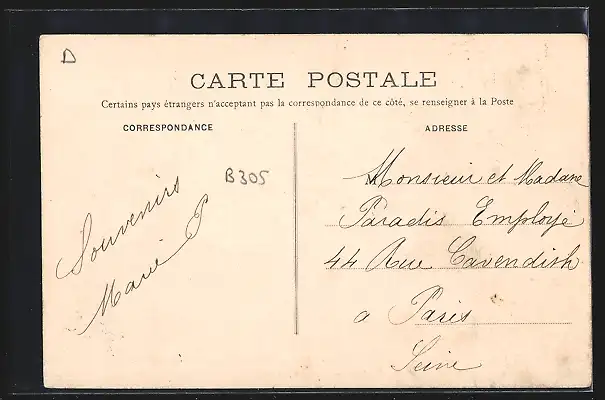 D
CARTE POSTALE
Certains pays étrangers n'acceptant pas la correspondance de ce côté, se renseigner à la Poste
CORRESPONDANCE
ADRESSE
B305
Souvenirs
Marie P
Monsieur et Madame
Paradis Employé
44 Rue Cavendish
a Paris
Seine